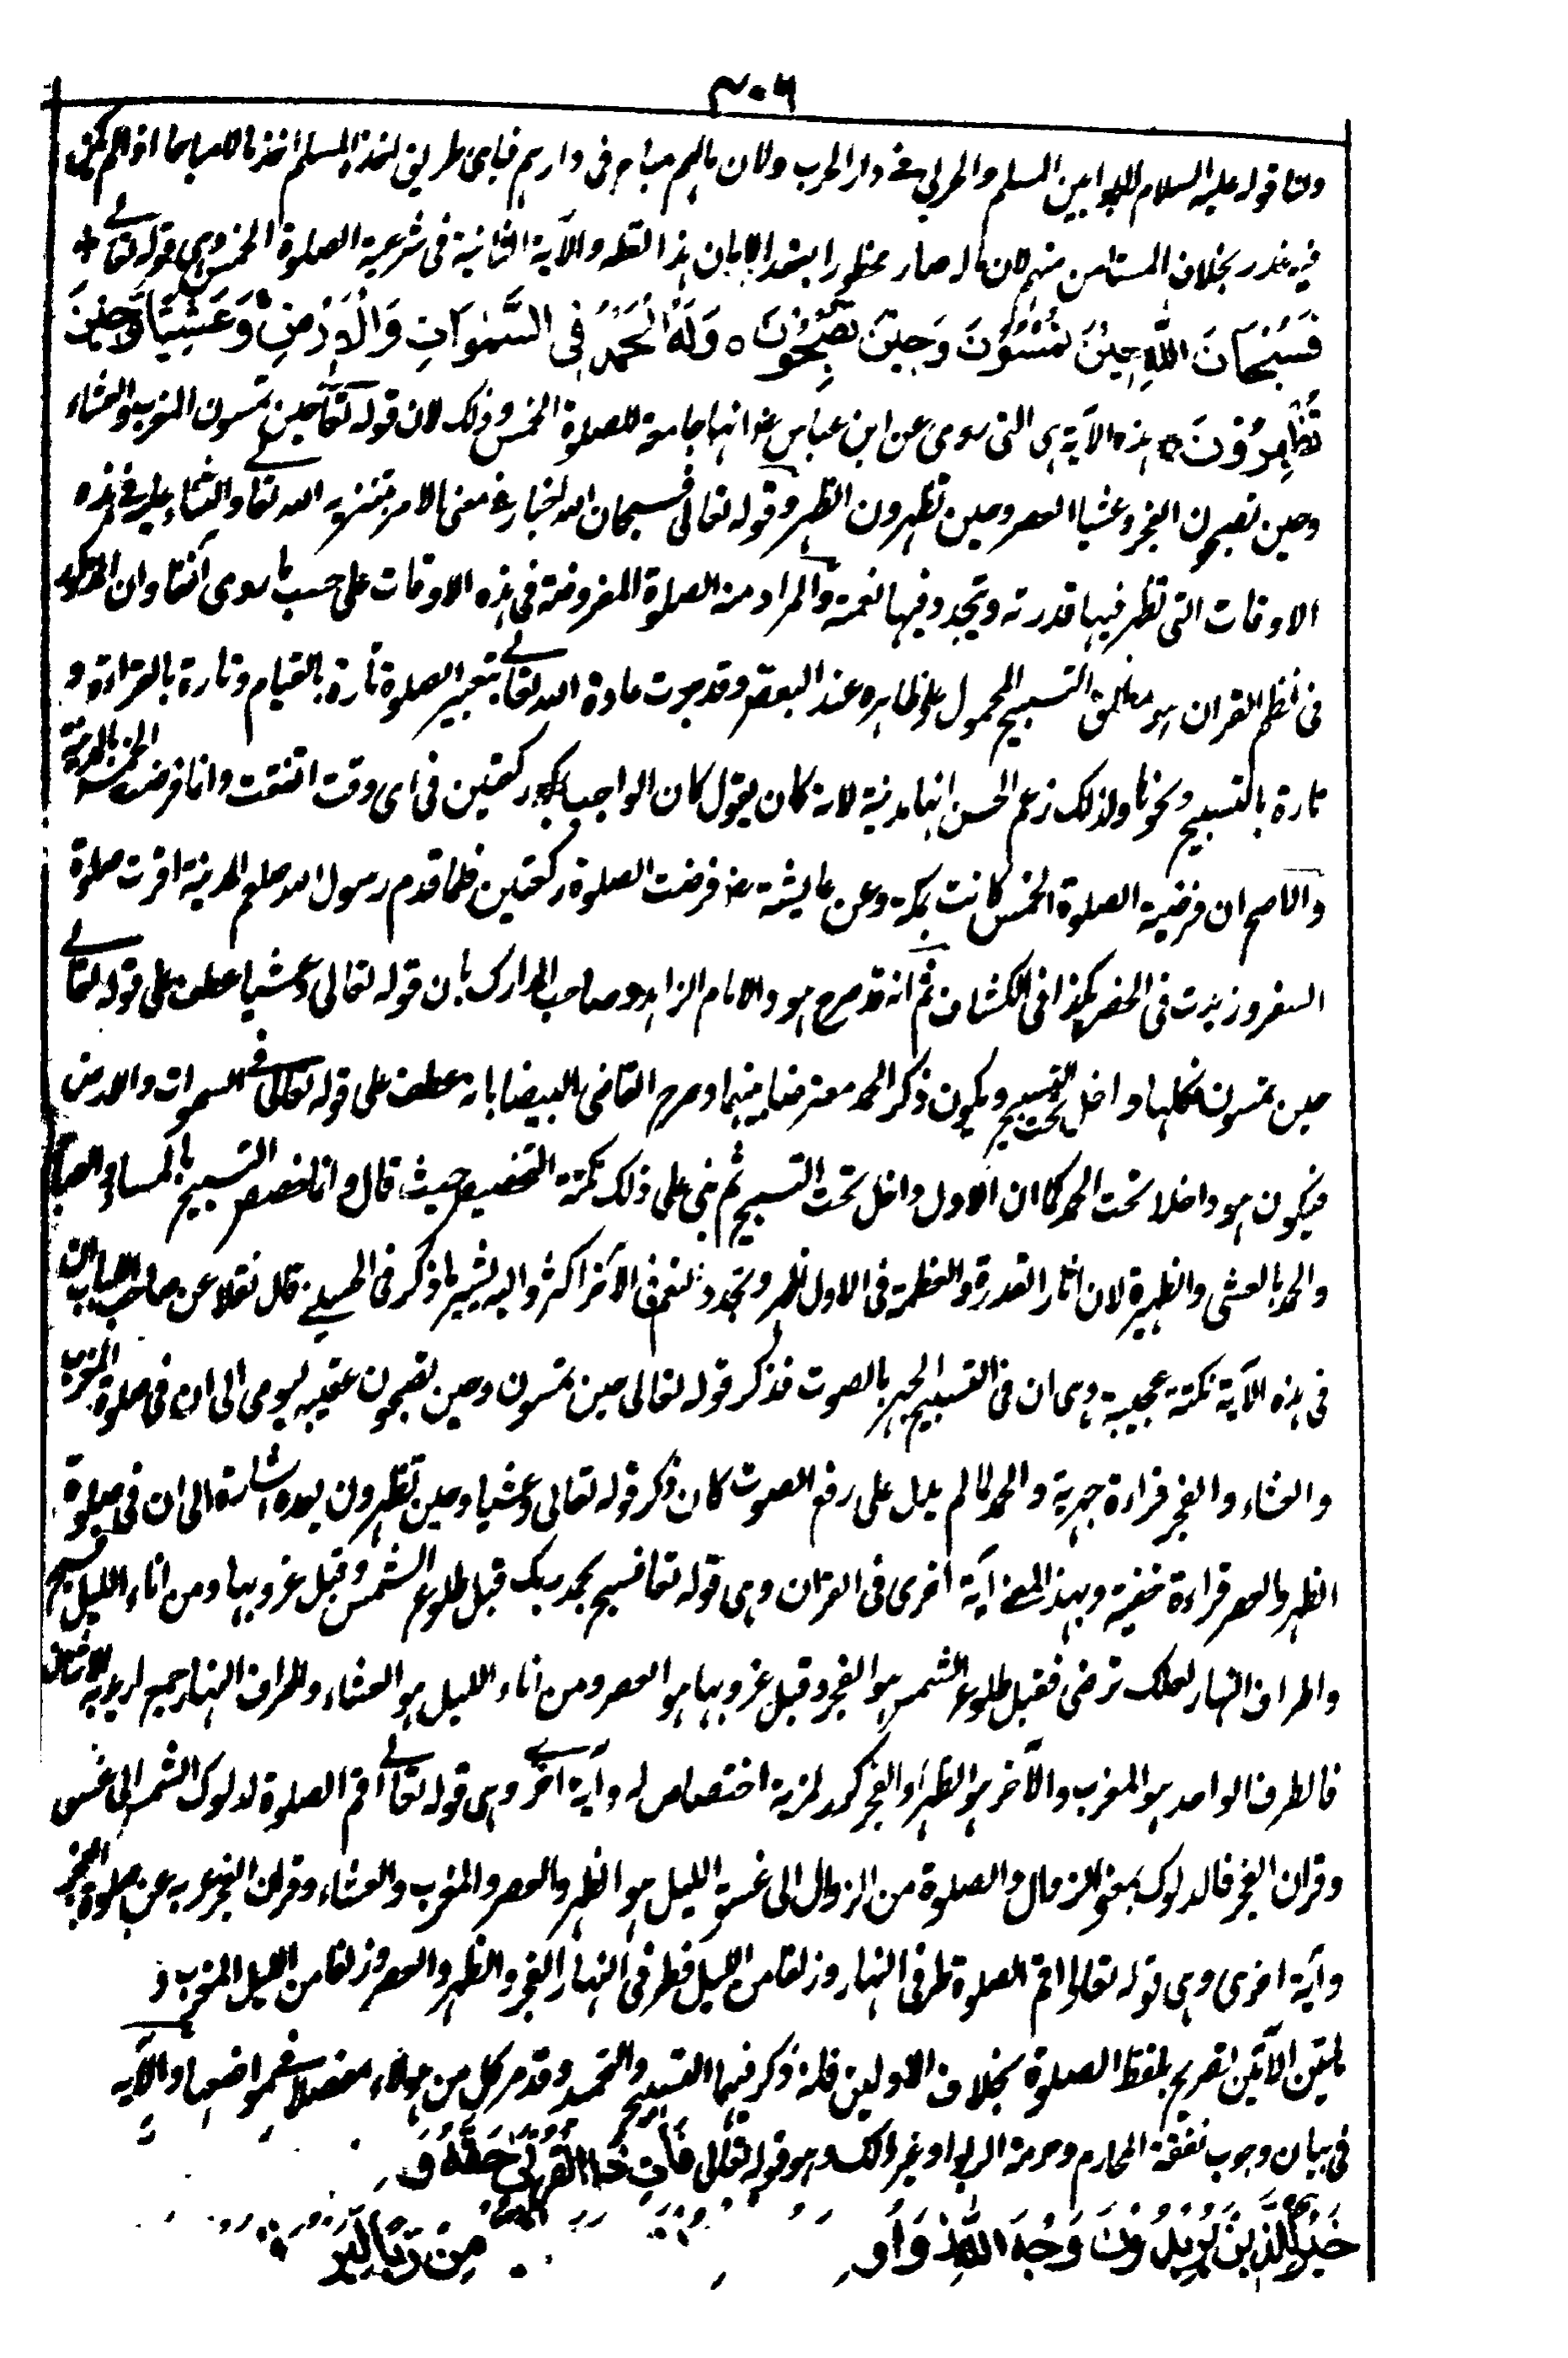 ٦٠٣
ولنا قوله عليه السلام لا ربوا بين المسلم والحربي في دار الحرب ولان مالهم مباح في دارهم فباي طريق اخذه المسلم اخذ مالا مباحا اذا لم يكن
فيه غدر بخلاف المستامن منهم لان ماله صار محظورا بعقد الامان هذا لفظه والآية الثانية في شرعية الصلوة الخمس وهي قوله تعالى
فَسُبْحَانَ اللّٰهِ حِيْنَ تُمْسُوْنَ وَحِيْنَ تُصْبِحُوْنَ ٥ وَلَهُ الْحَمْدُ فِى السَّمٰوَاتِ وَالْاَرْضِ وَعَشِيًّا وَّحِيْنَ
تُظْهِرُوْنَ ٥ هذه الآية هي التي روى عن ابن عباس رض انها جامعة للصلوة الخمس وذلك لان قوله تعالى حين تمسون المغرب والعشاء
وحين تصبحون الفجر وعشيا العصر وحين تظهرون الظهر وقوله تعالى فسبحان الله اخبار في معنى الامر بتنزيه الله تعالى والثناء عليه في هذه
الاوقات التي تظهر فيها قدرته وتجدد فيها نعمته والمراد منه الصلوة المفروضة في هذه الاوقات على حسب ما روى آنفا وان المذكور
في نظم القران هو مطلق التسبيح المحمول على ظاهره عند البعض وقد جرت عادة الله تعالى بتعبير الصلوة تارة بالقيام وتارة بالقراءة و
تارة بالتسبيح ونحوها ولذلك زعم الحسن انها مدنية لانه كان يقول كان الواجب بمكة ركعتين في اى وقت اتفقت وانما فرضت الخمس بالمدينة
والاصح ان فرضية الصلوة الخمس كانت بمكة وعن عايشة رض فرضت الصلوة ركعتين فلما قدم رسول الله صلعم المدينة اقرت صلوة
السفر وزيدت في الحضر هكذا في الكشاف ثم انه قد صرح هو والامام الزاهد وصاحب المدارك بان قوله تعالى وعشيا عطف على قوله تعالى
حين تمسون فكلها داخل تحت التسبيح ويكون ذكر الحمد معترضا بينهما وصرح القاضى البيضا بانه عطف على قوله تعالى في السموات والارض
فيكون هو داخلا تحت الحمد كما ان الاول داخل تحت التسبيح ثم بنى على ذلك نكتة التخصيص حيث قال وانما خصص التسبيح بالمساء والصباح
والحمد بالعشى والظهيرة لان اثار القدرة والعظمة في الاول اظهر وتجدد النعم في الآخر اكثر واليه يشير ما ذكر في الحسيني قال نقلا عن صاحب ان
في هذه الآية نكتة عجيبة وهى ان في التسبيح الجهر بالصوت فذكر قوله تعالى حين تمسون وحين تصبحون عقيبه يومى الى ان في صلوة المغرب
والعشاء والفجر قراءة جهرية والحمد لما لم يدل على رفع الصوت كان ذكر قوله تعالى وعشيا وحين تظهرون بعده اشارة الى ان في صلوة
الظهر والعصر قراءة خفية وبهذا المعنى آية اخرى في القران وهى قوله تعالى فسبح بحمد ربك قبل طلوع الشمس وقبل غروبها ومن اناء الليل فسبح
واطراف النهار لعلك ترضى فقبل طلوع الشمس هو الفجر وقبل غروبها هو العصر ومن اناء الليل هو العشاء واطراف النهار جمع اريد به الاثنان
فالطرف الواحد هو المغرب والآخر هو الظهر او الفجر كرر لمزية اختصاص له وآية اخرى وهى قوله تعالى اقم الصلوة لدلوك الشمس الى غسق
وقران الفجر فالدلوك بمعنى الزوال والصلوة من الزوال الى غسق الليل هو الظهر والعصر والمغرب والعشاء وقران الفجر عبر به عن صلوة الفجر
وآية اخرى وهى قوله تعالى اقم الصلوة طرفى النهار وزلفا من الليل فطرفى النهار الفجر والظهر والعصر وزلفا من الليل المغرب و
الآيتين تصريح بلفظ الصلوة بخلاف الاوليين فانه ذكر فيهما التسبيح والتحميد وقد مر كل من هؤلاء مفصلا في مواضعها والآية
في بيان وجوب نفقة المحارم وحرمة الربوا وغير ذلك وهو قوله تعالى فَاٰتِ ذَا الْقُرْبٰى حَقَّهٗ وَ
خَيْرٌ لِّلَّذِيْنَ يُرِيْدُوْنَ وَجْهَ اللّٰهِ وَاُو مِنْ رِّبًا لِّيَر